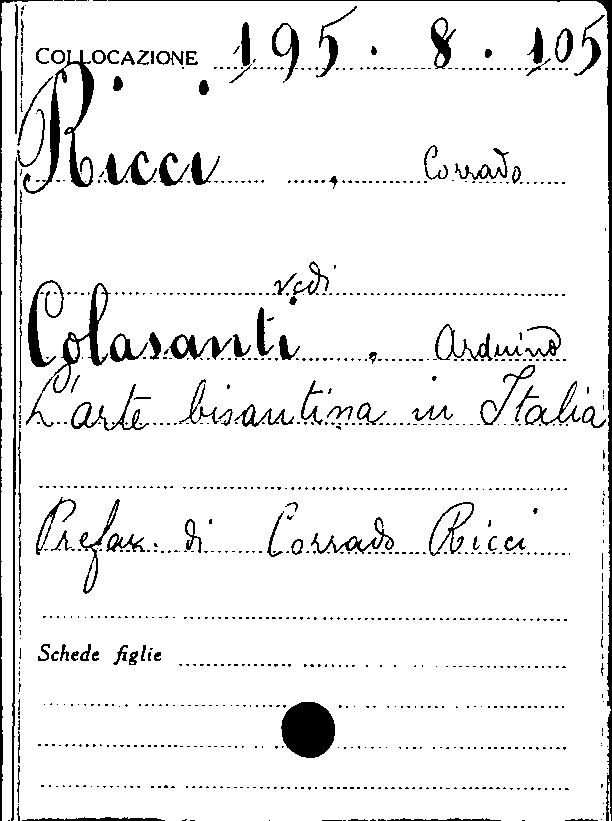 COLLOCAZIONE 195. 8. 105
Ricci, Corrado
vedi
Colasanti, Arduino
L'arte bisantina in Italia
Prefaz. di Corrado Ricci
Schede figlie